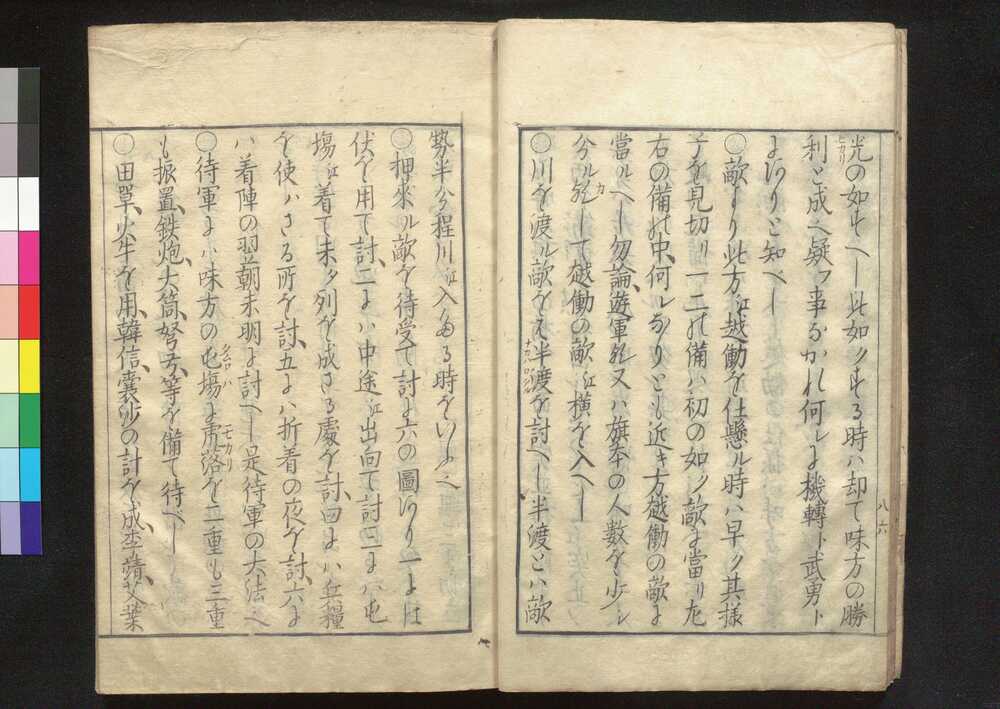 光の如すへし此如クする時ハ却て味方の勝
ヒカリ
利と成へ疑フ事なかれ何レも機轉ト武勇ト
にありと知べし
○敵より此方江越働を仕懸ル時ハ早ク其様
子を見切リ一二の備ハ初の如ク敵に當リ左
右の備の中何レなりとも近き方越働の敵に
當ルへし勿論遊軍歟又ハ旗本の人数を少シ
分ル歟して越働の敵江横を入へし
カ
○川を渡ル敵をは半渡を討へし半渡とハ敵
八 六
勢半分程川江入たる時をいふ也
○押來ル敵を待受て討に六の圖あり一には
伏を用て討二にハ中途江出向て討三にハ屯
塲江着て未タ列を成さる處を討四にハ兵糧
を使ハさる所を討五にハ折着の夜を討六に
ハ着陣の翌朝未明に討へし是待軍の大法也
○待軍にハ味方の屯塲に虎落を二重も三重
モカリ
も振置鉄炮大筒弩弓等を備て待べし
○田單火牛を用韓信嚢沙の計を成